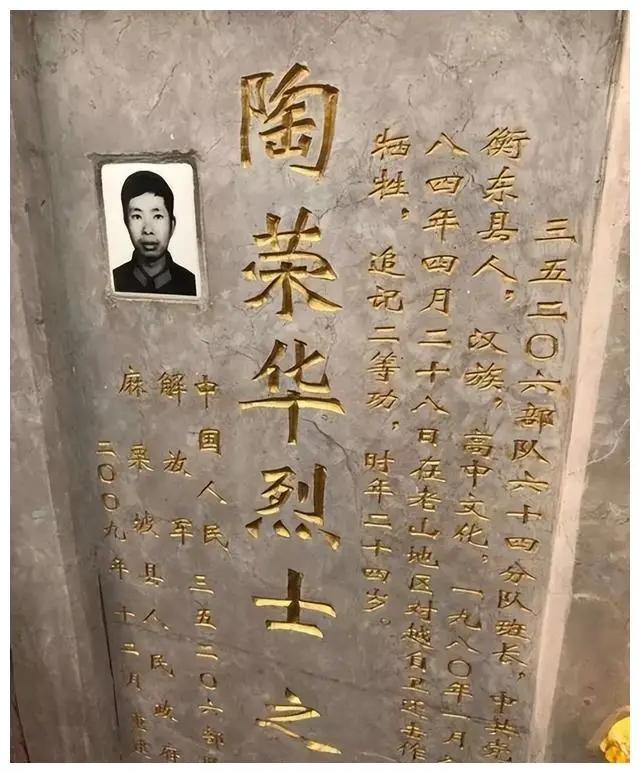 三五二〇六部队六十四分队班长，中共党
衡东县人，汉族，高中文化，一九八〇年一月
八四年四月二十八日在老山地区对越自卫还击作
牺牲，追记二等功，时年二十四岁。
陶荣华烈士之
中国人民 三五二〇六部
解放军
麻栗坡县人民政府
二〇〇九年十二月重建